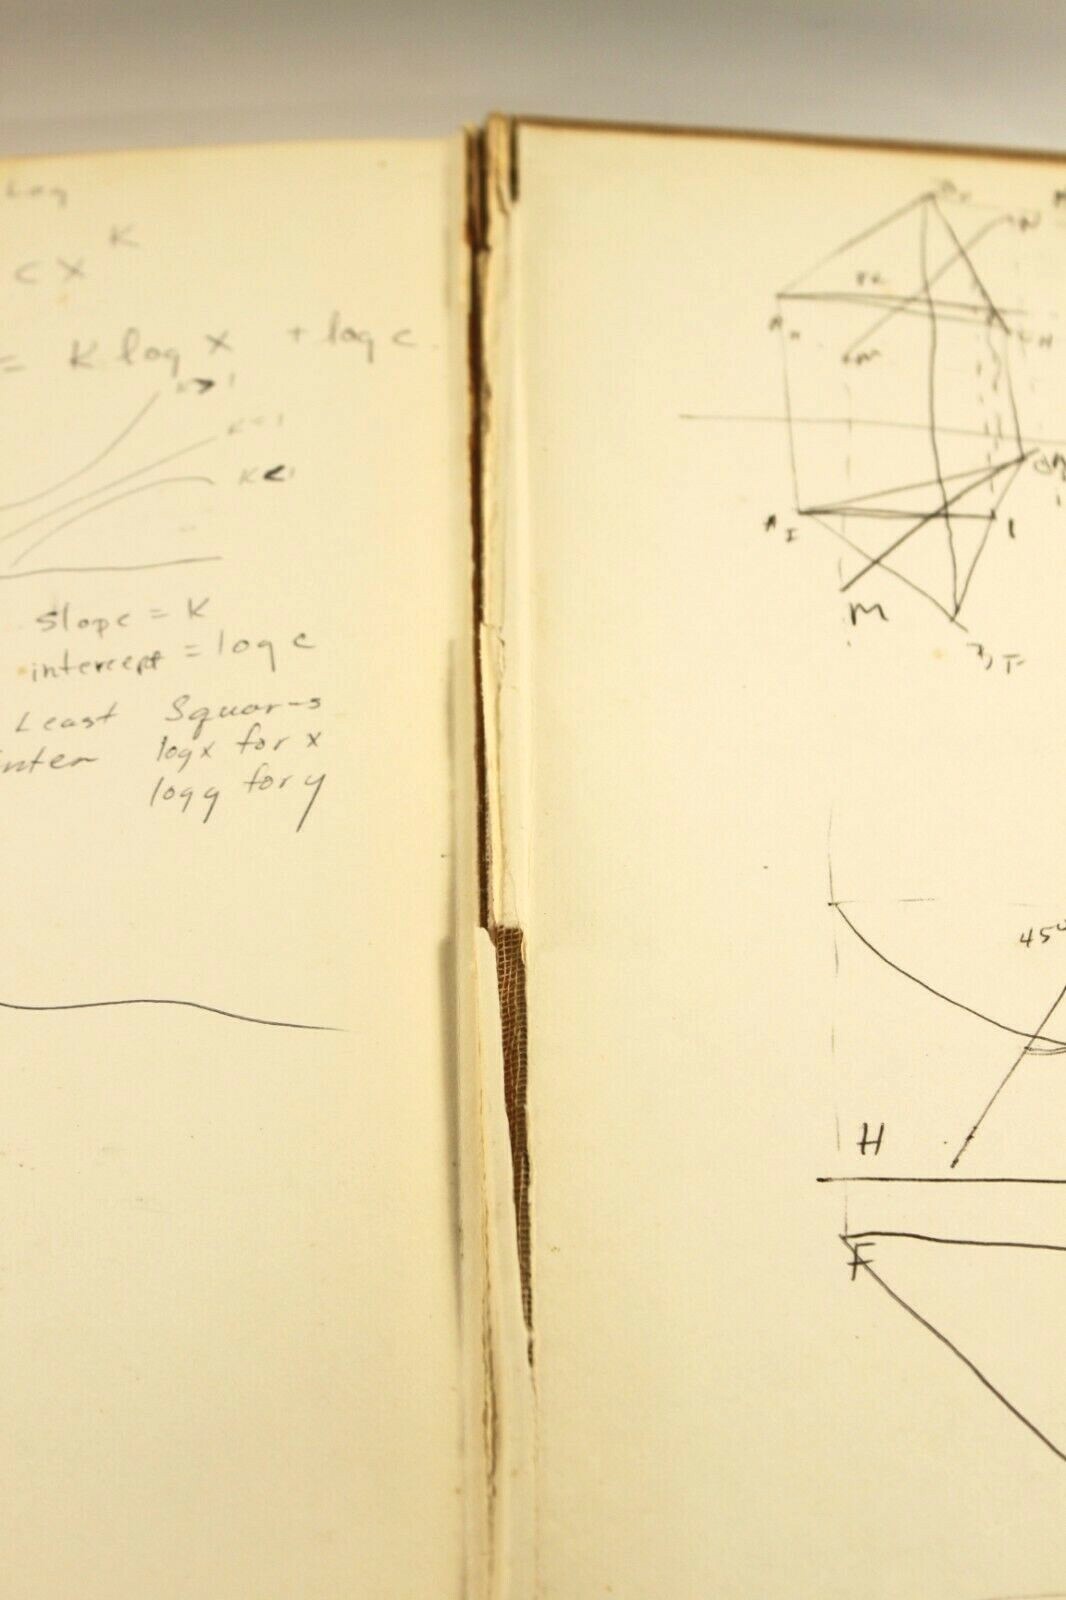 Log
cx^K
= K log x + log c
K>1
K=1
K<1
slope = K
intercept = log c
Least Squar-s
log x for x
log y for y
N
M
A I
1
M
45°
H
F